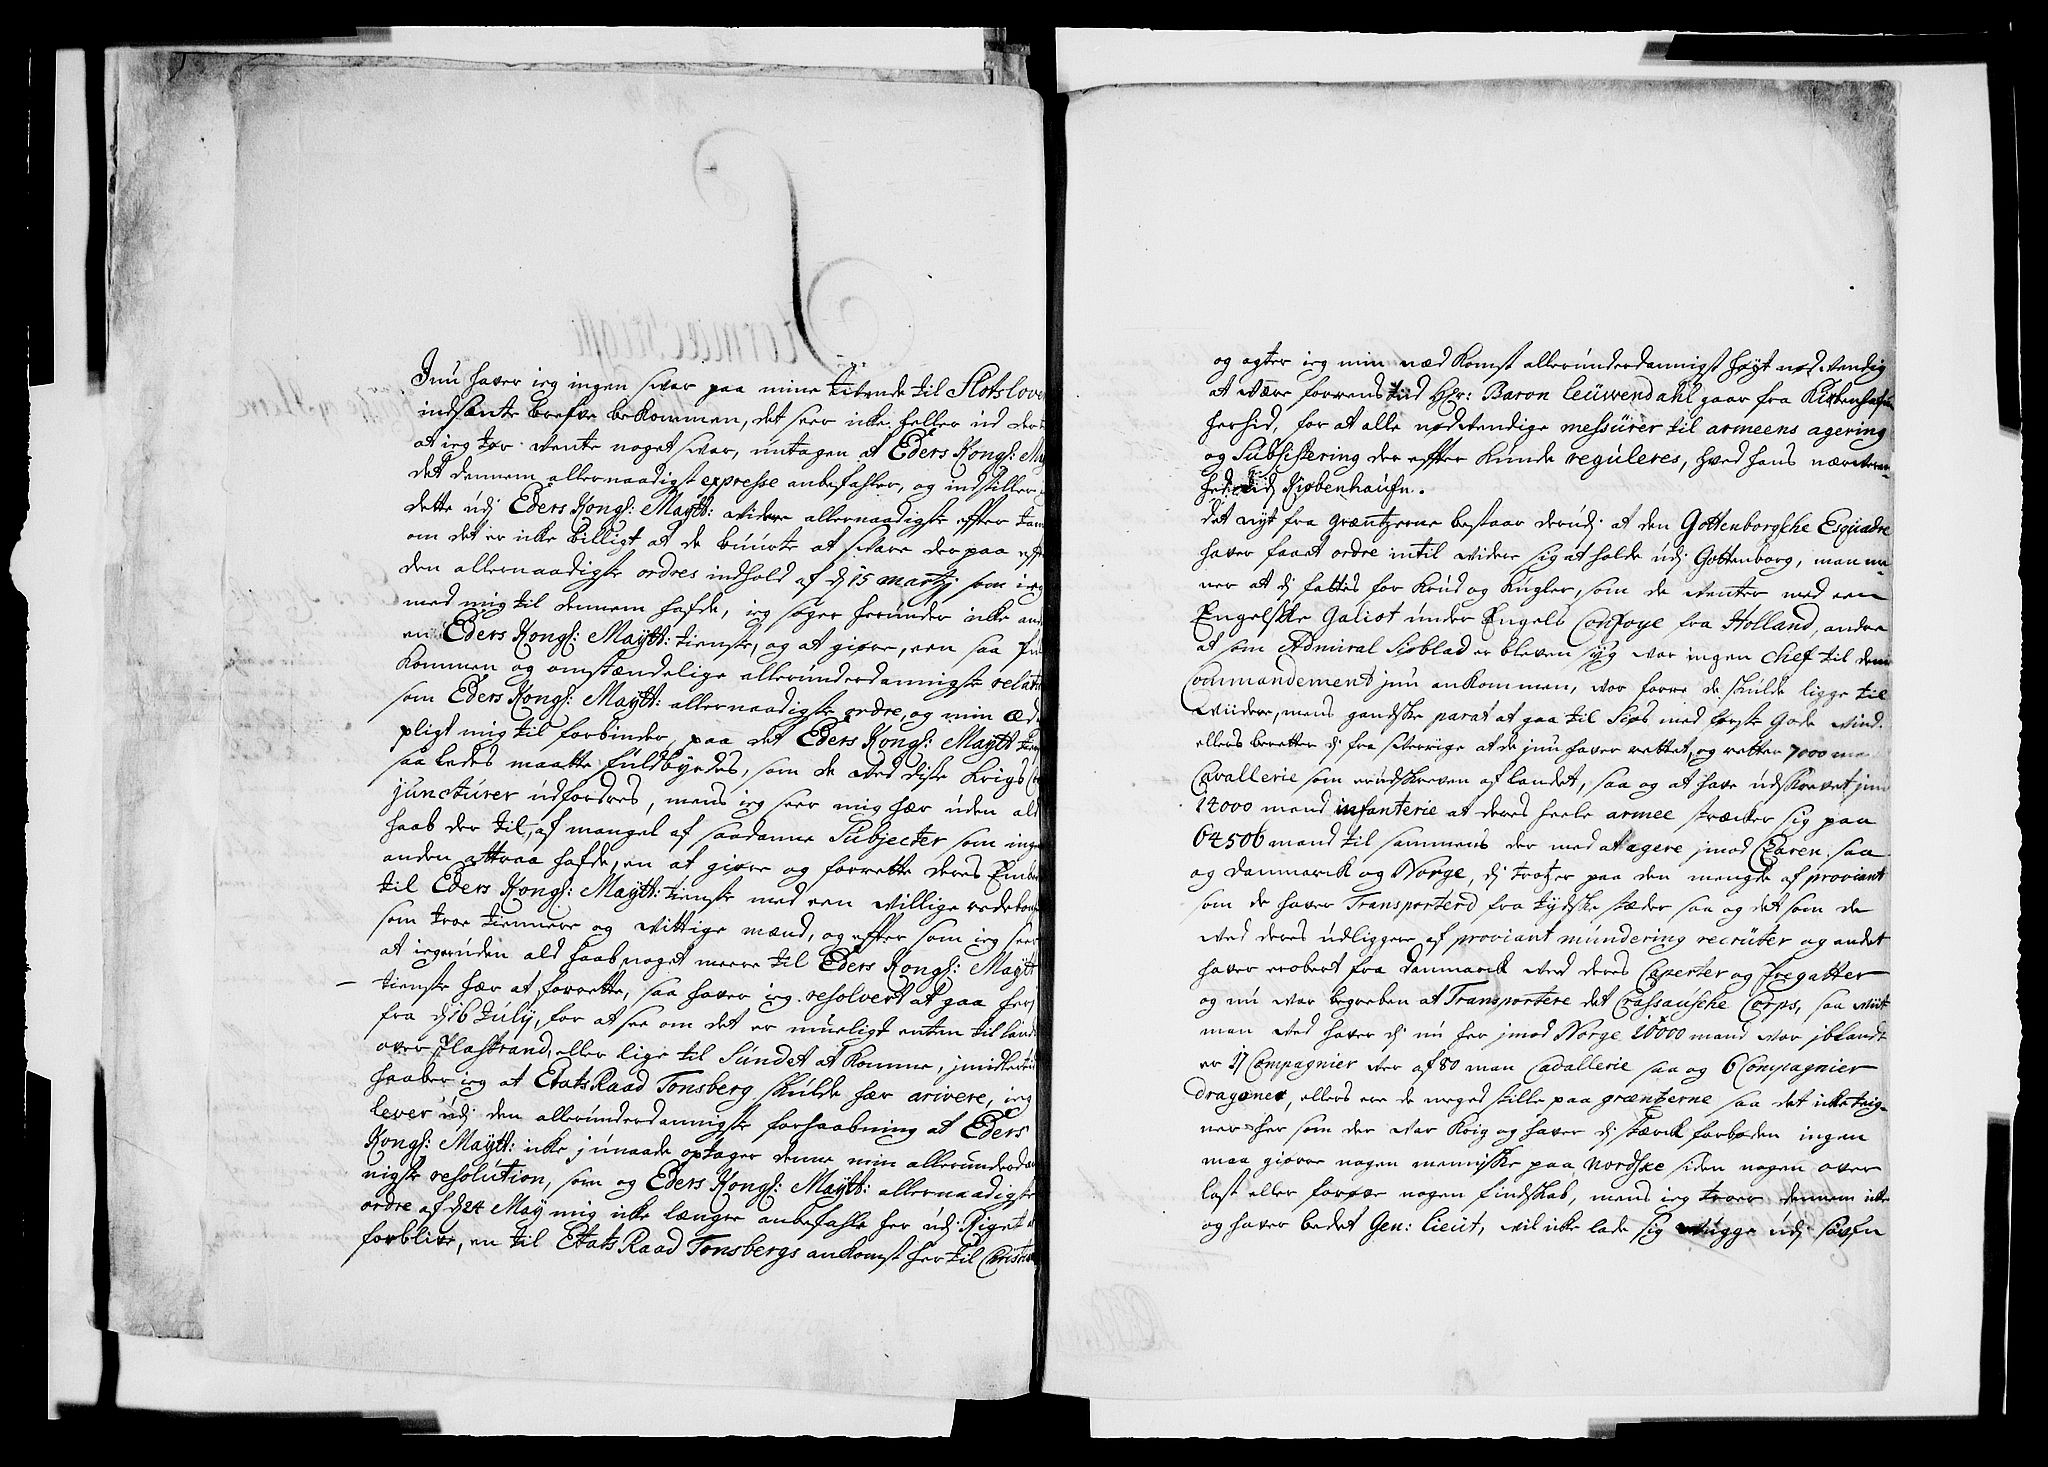 Jnu haver ieg ingen svar paa mine tiende til Slotslov
indsænte brefve bekommen, det seer ikke heller ud der
at ieg tør vente noget svar, untagen at Eders Kongl: May
det dennem allernaadigst expresse anbefahler, og indstiller
dette udj Eders Kongl: Maÿtt: videre allernaadigste efter tan
om det er ikke billigt at de buurte at svare der paa eff
den allernaadigste ordres indhold af dj 15 martij som ieg
med mig til dennem hafde, ieg søger herunder ikke and
en Eders Kongl: Maÿtt: tienste, og at giøre, een saa ful
kommen og omstændelige allerunderdannigste relati
som Eders Kongl: Maÿtt: allernaadigste ordre, og min æd
pligt mig til forbinder, paa det Eders Kongl: Maÿtt tien
saaledes maatte fuldbyrdes, som de ved diste Krigs C
juncturer udfordres, mens ieg seer mig hær uden ald
haab der til, af mangel af saadanne Subjecter som inge
anden attraa hafde, en at giøre og forrette deres Embe
til Eders Kongl: Maÿtt: tienste med een villige redebon
som troe tiennere og vittige mænd, og effter som ieg seer
at ieg er uden ald haab noget meere til Eders Kongl: Maÿtt
tienste hær at forrette, saa haver ieg resolvert at gaa her
fra dj 16 Julÿ, for at see om det er mueligt enten til land
over Flastrand, eller lige til Sundet at komme, jmidlertid
haaber ieg at Etats Raad Tonsberg skulde hær arivere, ieg
lever udj den allerunderdannigste forhaabning at Eders
Kongl: Maÿtt: ikke j unaade optager denne min allerunderdan
nigste resolution, som og Eders Kongl: Maÿtt: allernaadigste
ordre af dj 24 Maÿ mig ikke længre anbefahle her udj Riget
forblive, en til Etats Raad Tonsbergs ankomst her til Christia
og agter ieg min nædkomst allerunderdannigst høyt nødvendig
at være forrens tid Hr: Baron Leüwendahl gaar fra Kiøbenhafn
herhid, for at alle nødvendige messurer til armeens agering
og Subsistering der effter kunde reguleres, hved hans nærværen
hed udj Kiøbenhaufn.
det nyt fra græntzerne bestaar derudj at den Gottenborgsche Esquadre
haver faaet ordre intil videre sig at holde udj Gottenborg, man me
ner at dj fattes for Krud og Kugler, som de venter med een
Engelske Galiot under Engels Convoye fra Holland, andre
at som Admiral Siøblad er bleven syg var ingen Chef til dem
Commandement jnu ankommen, vor forre de skulde ligge til
widere, mens gandske parat at gaa til Siøs med første gode vind.
ellers beretter dj fra Sverrige at de jnu haver rettet, og retter 7000 ma
Cavallerie som er udskreven af landet, saa og at have udskrevet jnu
14000 mand infanterie at deres heele armee strecker sig paa
64506 mand til sammens der med at agere jmod Czaren saa
og Danmarck og Norge, dj trotzer paa den mengde af proviant
som de haver Transporterd fra tydske stæder saa og det som de
ved deres udliggere af proviant mundering recruter og andet
haver erobert fra Danmarck ved deres Caperter og fregatter
og nu var begreben at Transportere det Crassausche Corps, saa viit
man ved haver dj nu her jmod Norge 20000 mand vor jblandt
er 17 Compagnier ver af 80 man Cavallerie saa og 6 Compagnier
dragoner, ellers ere de meged stille paa grænterne saa det ikke teig-
ner her som der var Krig og haver dj stærck forboden ingen
maa giøre nogen menniske paa Nordske siden nogen over
last eller forøve nogen findskab, mens ieg troer dennem ikke
og haver bedet Gen: Lieut, vil ikke lade sig vugge udj søvfn